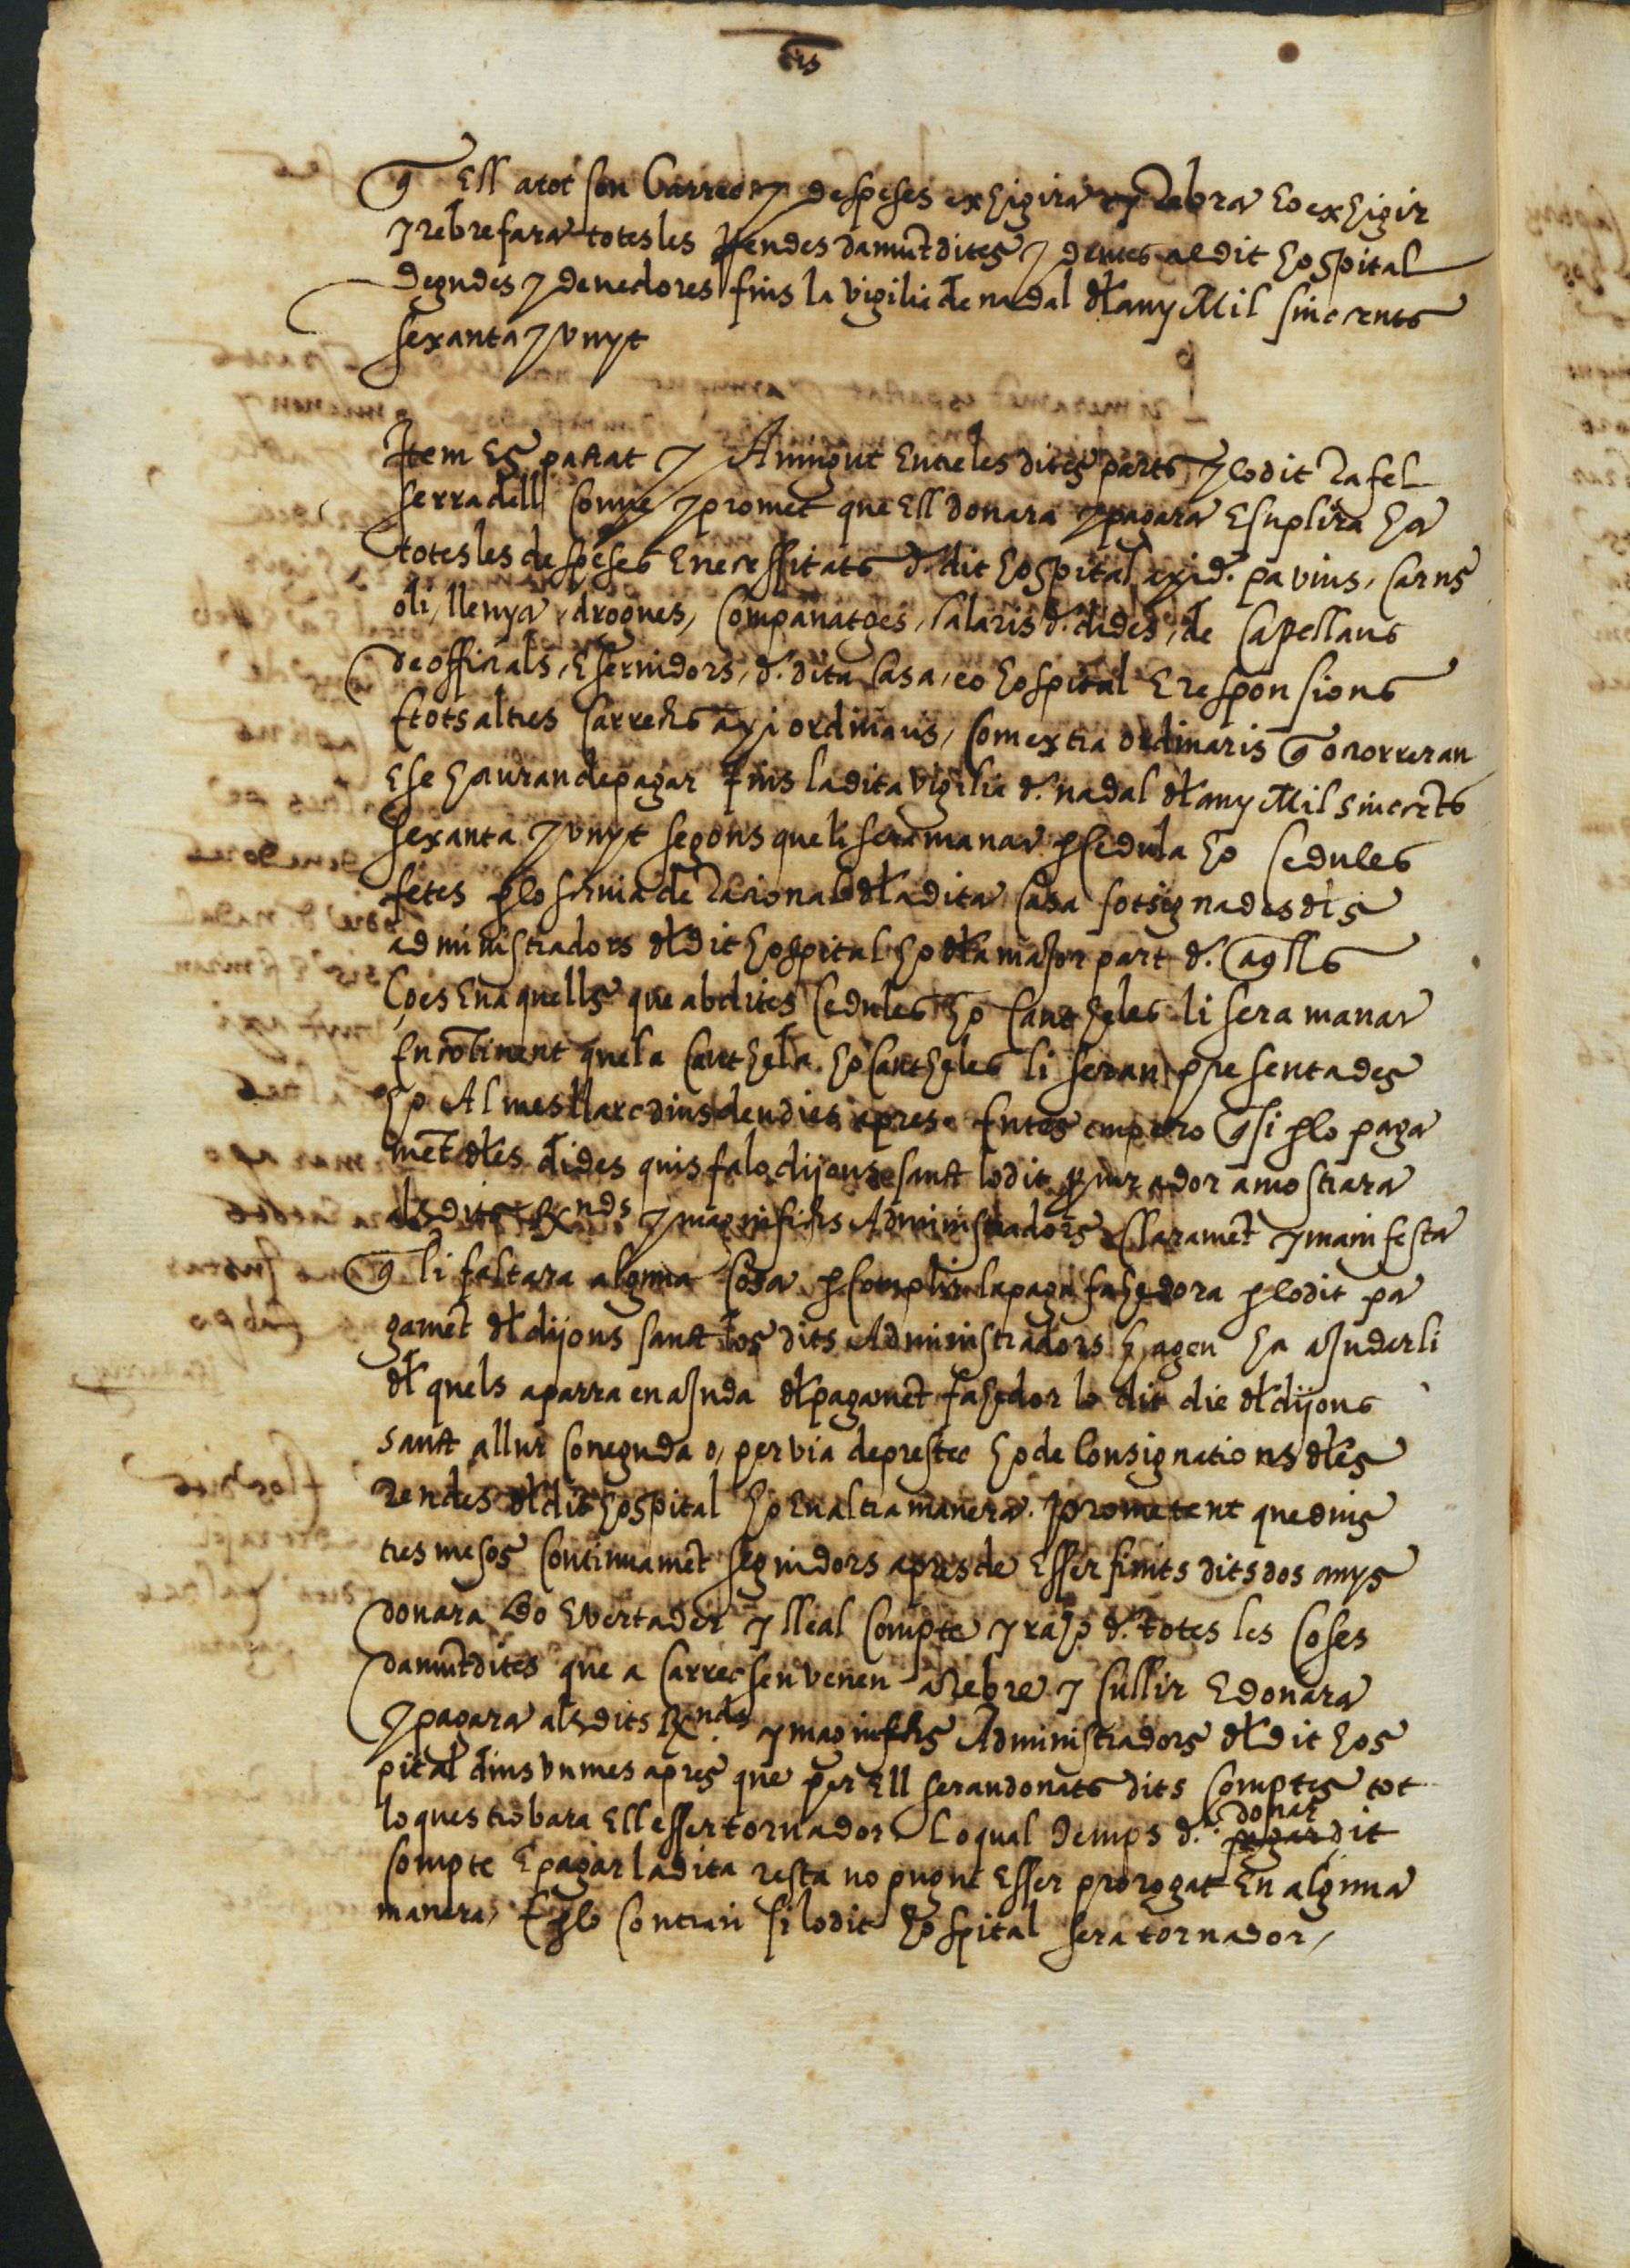 q Ell a tot son Carrec y despeses exhigira y Rebra ho exhigir
y rebre fara totes les Rendes damũt dites y dentes al dit hospital
degudes y devedores fins la vigilia de nadal dł any Mil sinccents
sexanta y vuyt
Item Es pactat y Avingut Entre les dites parts y lo dit Rafel
serradell Conve y promet que Ell donara y pagara E suplira ha
totes les despeses E necessitats d. dit hospital axi d. pa vins, Carns
oli, llenya, drogues, Companatges, Salaris d. dides, de Capellans
de officials, E servidors, d. dita Casa, eo hospital E responsions
E tots altres Carrechs axi ordinaris, Com extra ordinaris q ocorreran
E se hauran de pagar fins la dita vigilia d. nadal dł any Mil sinccẽts
sexanta y vuyt segons que li sera manar p sedula ho sedules
fetes p lo scriva de Racional dła dita Casa sotsignades dłs
administradors dł dit hospital ho dła major part d. aqlls
Ço es En aquells que ab dites Cedules ho Cautheles li sera manar
Encõtinent que la Cauthela ho Cautheles li seran presentades
ho Al mes llarc dins deu dies apres. Entes empero q si p lo paga
mẽt dłes dides quis fa lo dijous sanct lo dit pcurador amostrara
als dits Rx.nds y magnifichs Administradors Claramẽt y manifesta
q li faltara alguna Cosa p Complir la paga fahedora p lo dit pa
gamẽt dł dijous sanct los dits Administradors hagen ha ajuderli
dł quels aparra en ajuda dł pagamẽt fahedor lo dit die dł dijous
sanct a llur Coneguda o, per via de prestec ho de Consignations dłes
Rendes dł dit hospital ho En altra manera. Prometent que dins
tres mesos Continuamẽt seguidors apres de Esser finits dits dos anys
donara bo E vertader y lleal Compte y raho d. totes les Coses
damũt dites que a Carrec seu venen a Rebre y Cullir E donara
y pagara als dits Rx.nds y magnifichs Administradors dł dit hos
pital dins vn mes apres que per Ell seran donats dits Comptes tot
lo ques trobara Ell esser tornador Lo qual temps d. donar dit
Compte E pagar la dita resta no pugue Esser prorogat En alguna
manera, E p lo Contrari si lo dit hospital sera tornador,